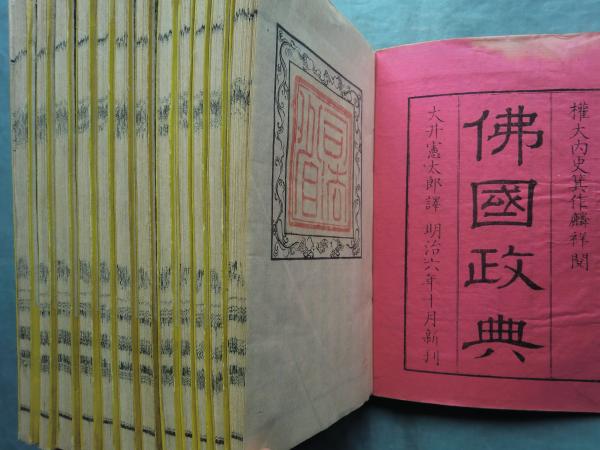 權大内史箕作麟祥閲
佛國政典
大井憲太郎譯 明治六年十月新刊
司法省